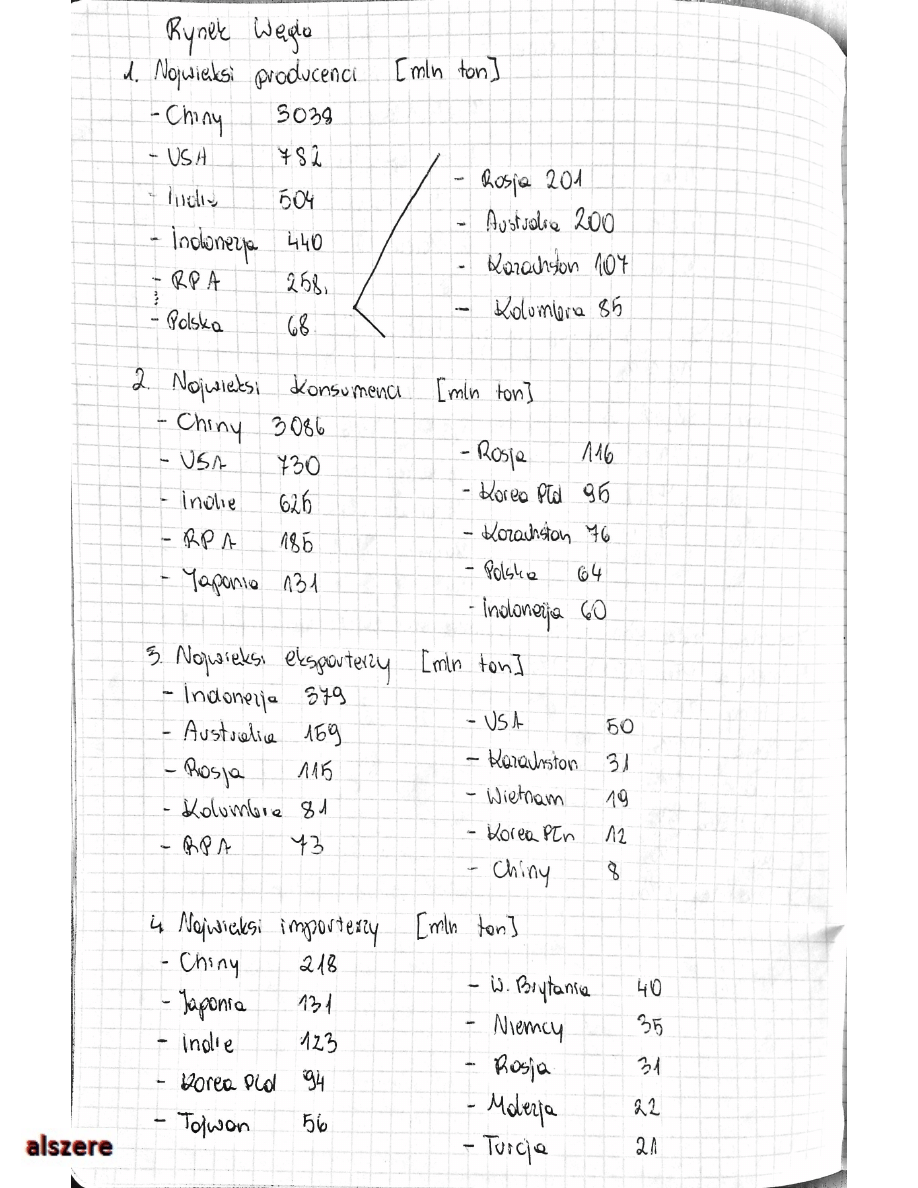 Rynek Węgla
1. Najwieksi producenci [mln ton]
- Chiny 3038
- USA 782
- Indie 504
- Indonezja 440
- RPA 258
- Polska 68
- Rosja 201
- Australia 200
- Kazachstan 107
- Kolumbia 85
2. Najwieksi konsumenci [mln ton]
- Chiny 3086
- USA 730
- indie 625
- RPA 185
- Japonia 131
- Rosja 116
- Korea Płd 95
- Kazachstan 76
- Polska 64
- indonezja 60
3. Najwieksi eksporterzy [mln ton]
- Indonezja 379
- Australia 159
- Rosja 115
- Kolumbia 81
- RPA 73
- USA 50
- Kazachstan 31
- Wietnam 19
- Korea Płn 12
- Chiny 8
4. Najwieksi importerzy [mln ton]
- Chiny 218
- Japonia 131
- indie 123
- Korea Płd 94
- Tajwan 56
- W. Brytania 40
- Niemcy 35
- Rosja 31
- Malezja 22
- Turcja 21
alszere